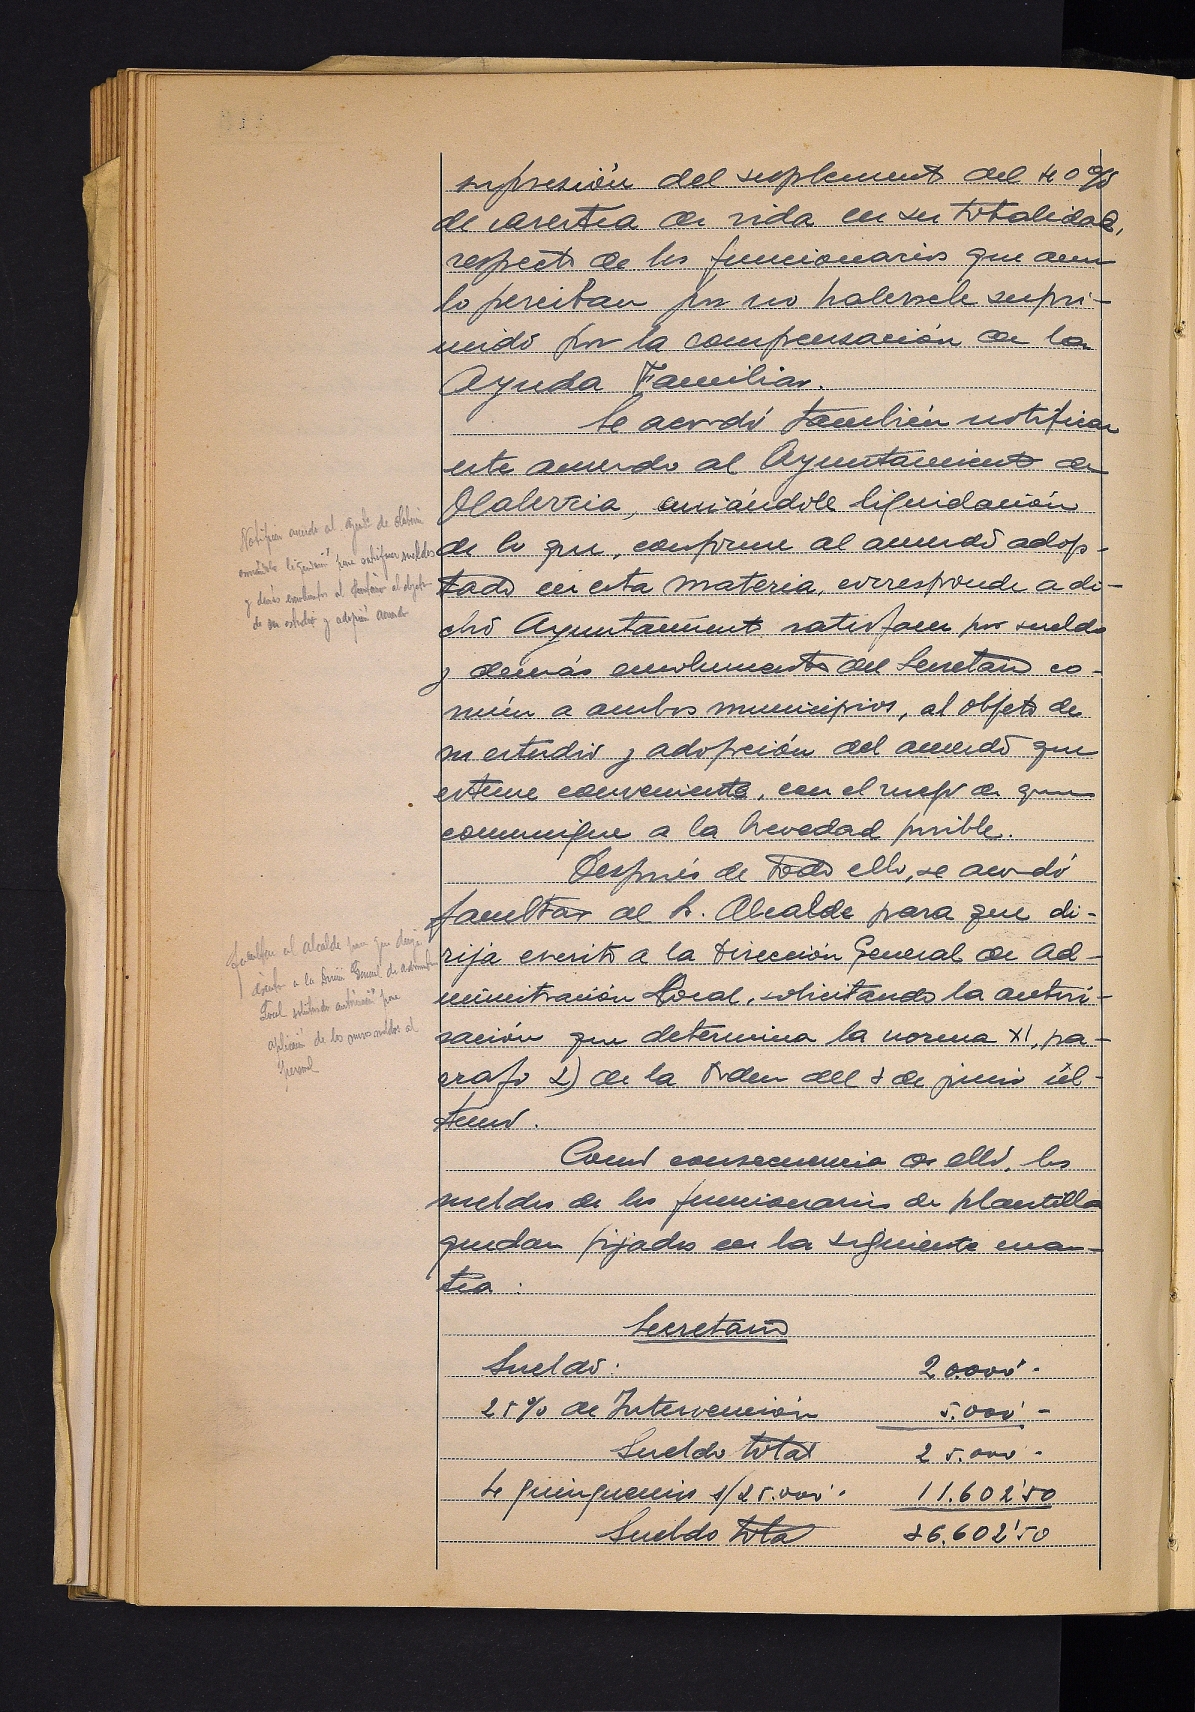 supresión del suplemento del 40%
de carestía de vida en su totalidad,
respecto de los funcionarios que aun
lo perciban por no habersele supri-
mido por la compensación de la
Ayuda Familiar.
Se acordó también notificar
este acuerdo al Ayuntamiento de
Olaberria, enviándole liquidación
de lo que, conforme al acuerdo adop-
tado en esta materia, corresponde a di-
cho Ayuntamiento satisfacer por sueldo
y demás emolumentos del Secretario co-
mún a ambos municipios, al objeto de
su estudio y adopción del acuerdo que
estime conveniente, con el ruego de que
comunique a la brevedad posible.
Después de todo ello, se acordó
facultar al Sr. Alcalde para que di-
rija escrito a la Dirección General de Ad-
ministración Local, solicitando la autori-
zación que determina la norma XI, pá-
rrafo 2) de la Orden del 3 de junio úl-
timo.
Como consecuencia de ello, los
sueldos de los funcionarios de plantilla
quedan fijados en la siguiente cuan-
tía:
Secretario
Sueldo: 20.000'-
25% de Intervención 5.000'-
Sueldo total 25.000'-
4 quinquenios s/25.000'- 11.602'50
Sueldo total 36.602'50
Notificar acuerdo al Ayto de Olaberria
enviándole liquidación para satisfacer sueldos
y demás emolumentos al Secretario al objeto
de su estudio y adopción acuerdo
Facultar al Alcalde para que dirija
escrito a la Dirección General de Administración
Local solicitando autorización para
aplicación de los nuevos sueldos al
personal